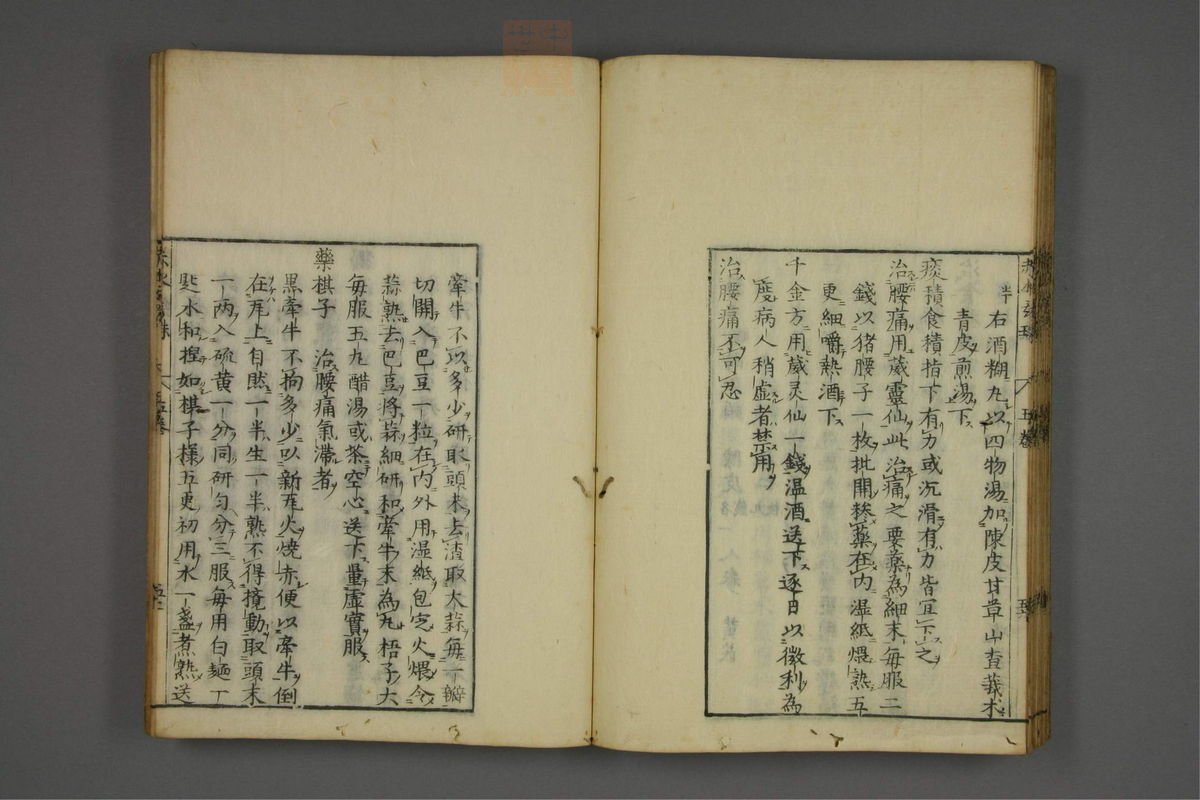 右酒糊丸以四物湯加陳皮甘草山査莪朮
青皮煎湯下
痰積食積指下有力或沉滑有力皆宜下之
治腰痛用葳靈仙此治痛之要藥為細末毎服二
錢以猪腰子一枚批開糝藥在内湿紙煨熟五
更細嚼熱酒下
千金方用葳灵仙一錢温酒送下逐日以微利為
度病人稍虚者禁用
治腰痛不可忍
牽牛不以多少研取頭末去渣取大蒜毎一瓣
切開入巴豆一粒在内外用湿紙包定火煨令
蒜熟去巴豆將蒜細研和牽牛末為丸梧子大
毎服五丸醋湯或茶空心送下量虚實服
藥棋子　治腰痛氣滞者
黒牽牛不拘多少以新瓦火燒赤便以牽牛倒
在瓦上自然一半生一半熟不得攪動取頭末
一両入硫黄一分同研匀分三服毎用白麺一
匙水和捏如棋子様五更初用水一盞煮熟送